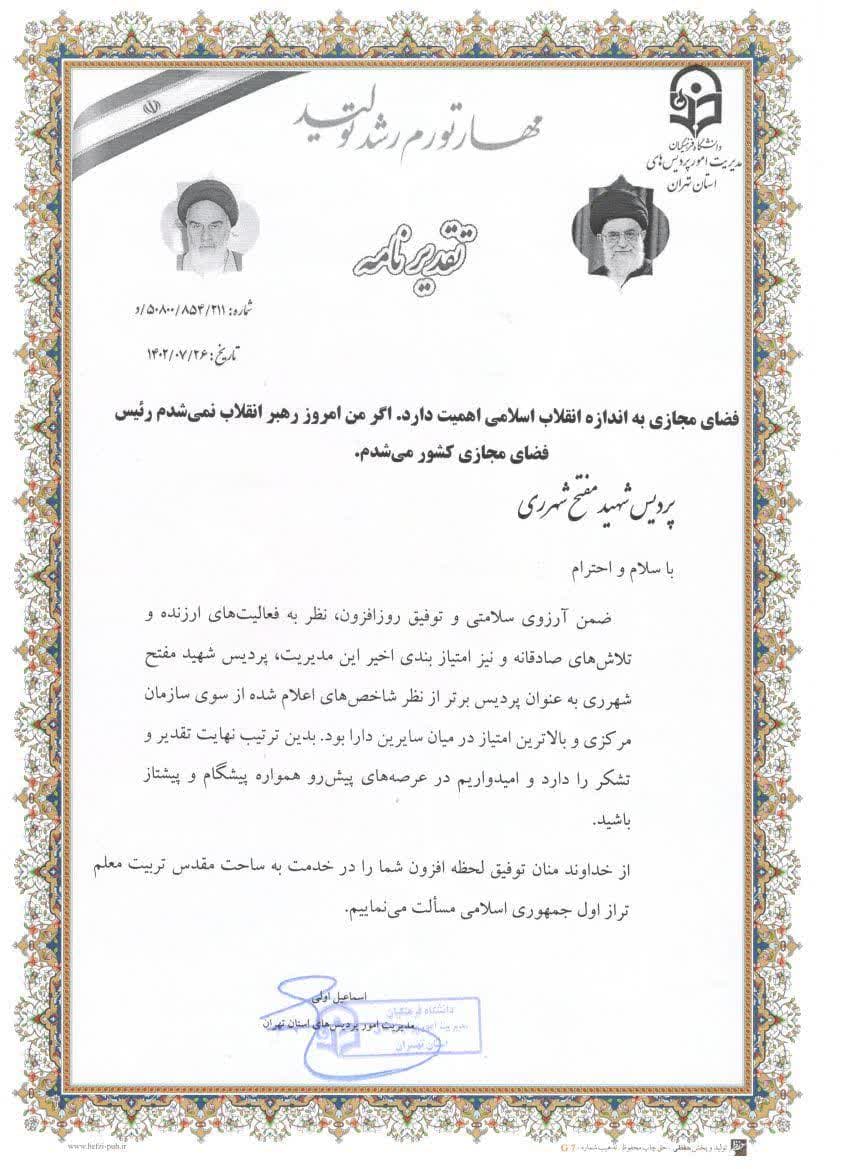 مهار تورم رشد تولید
دانشگاه فرهنگیان
مدیریت امور پردیس‌های
استان تهران
تقدیر نامه
شماره: ۵۰۸۰۰/۸۵۴/۲۱۱/د
تاریخ: ۱۴۰۲/۰۷/۲۶
فضای مجازی به اندازه انقلاب اسلامی اهمیت دارد. اگر من امروز رهبر انقلاب نمی‌شدم رئیس
فضای مجازی کشور می‌شدم.
پردیس شهید مفتح شهرری
با سلام و احترام
ضمن آرزوی سلامتی و توفیق روزافزون، نظر به فعالیت‌های ارزنده و
تلاش‌های صادقانه و نیز امتیاز بندی اخیر این مدیریت، پردیس شهید مفتح
شهرری به عنوان پردیس برتر از نظر شاخص‌های اعلام شده از سوی سازمان
مرکزی و بالاترین امتیاز در میان سایرین دارا بود. بدین ترتیب نهایت تقدیر و
تشکر را دارد و امیدواریم در عرصه‌های پیش‌رو همواره پیشگام و پیشتاز
باشید.
از خداوند منان توفیق لحظه افزون شما را در خدمت به ساحت مقدس تربیت معلم
تراز اول جمهوری اسلامی مسألت می‌نماییم.
اسماعیل اولی
مدیریت امور پردیس‌های استان تهران
دانشگاه فرهنگیان
مدیریت امور
استان تهران
تولید و پخش حفظی - حق چاپ محفوظ - تذهیب شماره G-7
www.hefzi-pub.ir